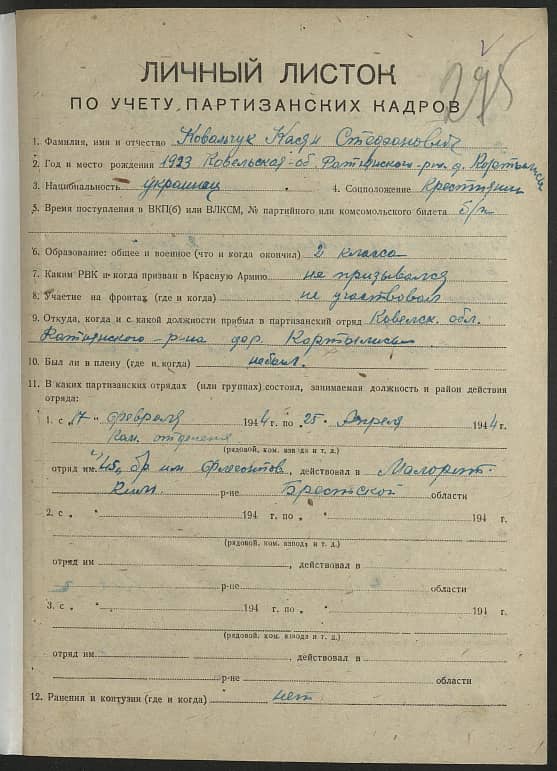 295
ЛИЧНЫЙ ЛИСТОК
ПО УЧЕТУ ПАРТИЗАНСКИХ КАДРОВ
1. Фамилия, имя и отчество Ковальчук Касян Стефанович
2. Год и место рождения 1923 Ковельская-об. Ратнянского-р-на д. Кортылисы
3. Национальность украинец 4. Соцположение Крестянин
5. Время поступления в ВКП(б) или ВЛКСМ, № партийного или комсомольского билета б/п
6. Образование: общее и военное (что и когда окончил) 2 класса
7. Каким РВК и когда призван в Красную Армию не призывался
8. Участие на фронтах (где и когда) не участвовал
9. Откуда, когда и с какой должности прибыл в партизанский отряд Ковелск. обл.
Ратнянского р-на дер. Кортылисы
10. Был ли в плену (где и когда) небыл
11. В каких партизанских отрядах (или группах) состоял, занимаемая должность и район действия
отряда:
1. с „17“ февраля 1944 г. по „25“ Апреля 1944 г.
Ком. отделеня
(рядовой, ком. взвода и т. д.)
отряд им. бр им , действовал в Малорит-
ским р-не Брестской области
2. с „ “ 194 г. по „ “ 194 г.
(рядовой, ком. взвода и т. д.)
отряд им , действовал в
р-не области
3. с „ “ 194 г. по „ “ 194 г.
(рядовой, ком. взвода и т. д.)
отряд им , действовал в
р-не области
12. Ранения и контузии (где и когда) нет